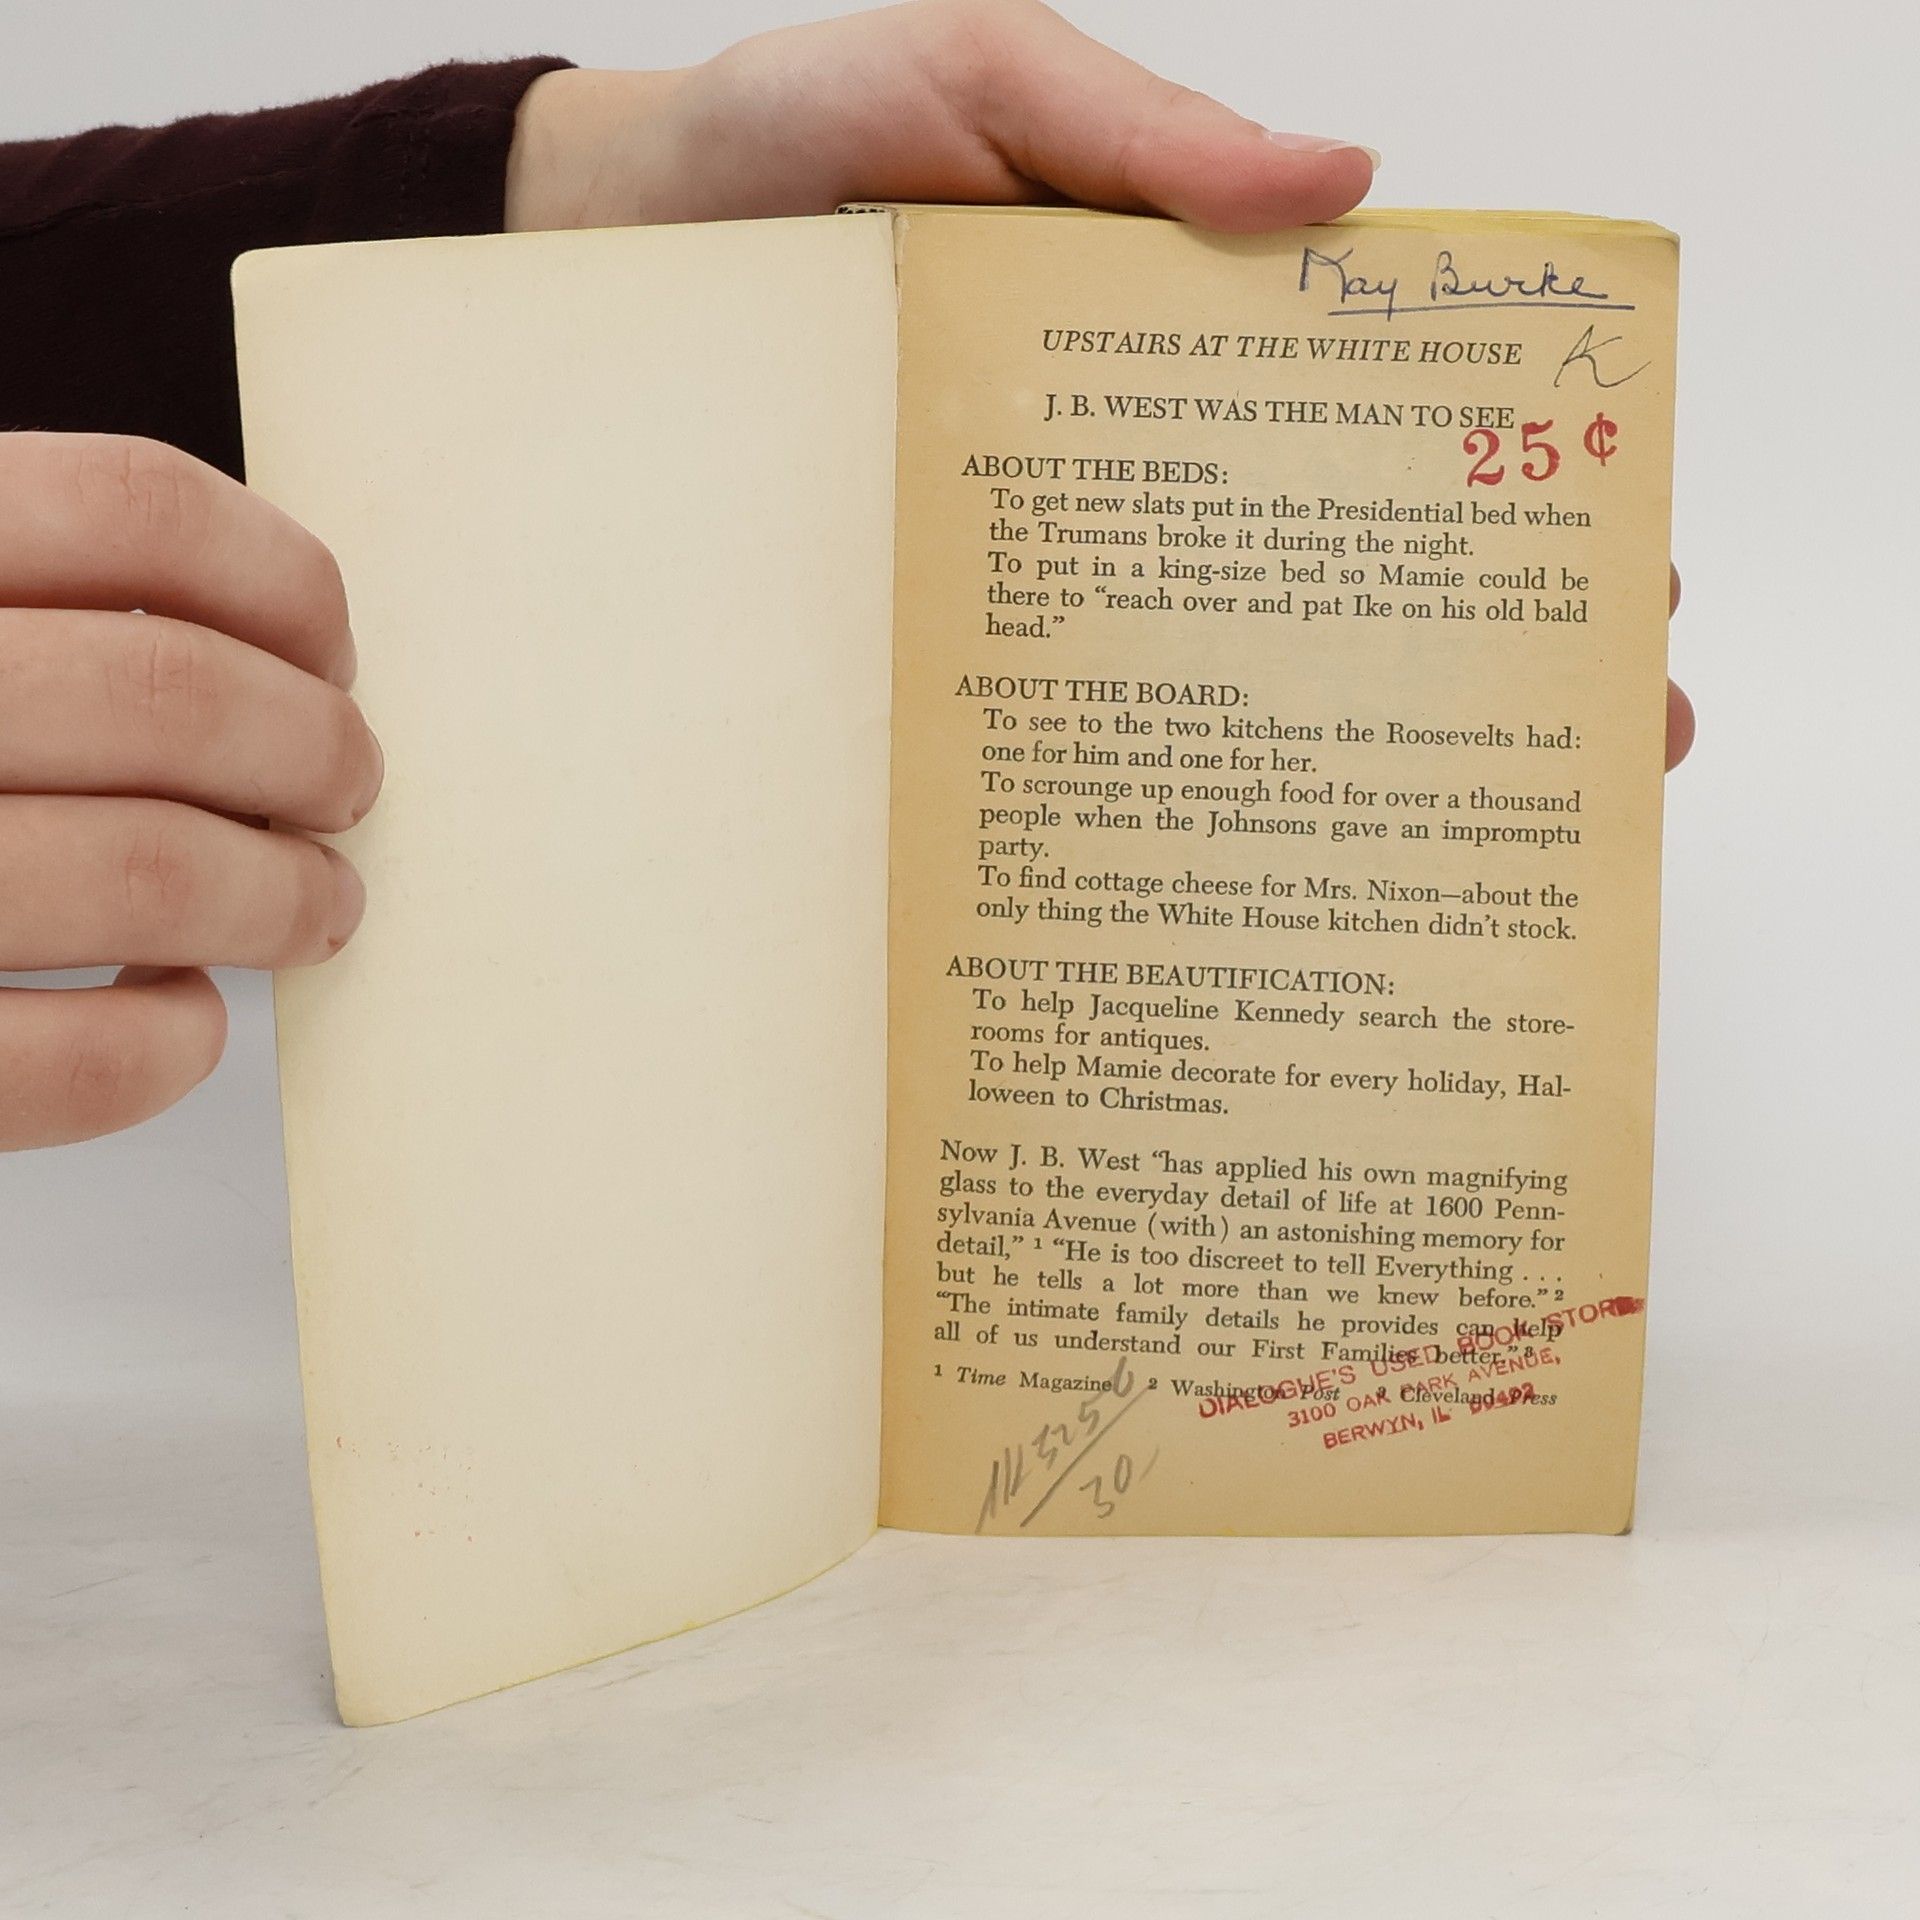 Kay Burke
UPSTAIRS AT THE WHITE HOUSE
K
J. B. WEST WAS THE MAN TO SEE
25¢
ABOUT THE BEDS:
To get new slats put in the Presidential bed when
the Trumans broke it during the night.
To put in a king-size bed so Mamie could be
there to “reach over and pat Ike on his old bald
head.”
ABOUT THE BOARD:
To see to the two kitchens the Roosevelts had:
one for him and one for her.
To scrounge up enough food for over a thousand
people when the Johnsons gave an impromptu
party.
To find cottage cheese for Mrs. Nixon—about the
only thing the White House kitchen didn’t stock.
ABOUT THE BEAUTIFICATION:
To help Jacqueline Kennedy search the store-
rooms for antiques.
To help Mamie decorate for every holiday, Hal-
loween to Christmas.
Now J. B. West “has applied his own magnifying
glass to the everyday detail of life at 1600 Penn-
sylvania Avenue (with) an astonishing memory for
detail,” 1 “He is too discreet to tell Everything . . .
but he tells a lot more than we knew before.” 2
“The intimate family details he provides can help
all of us understand our First Families better.” 3
1 Time Magazine 2 Washington Post 3 Cleveland Press
DIALOGUE'S USED BOOK STORE
3100 OAK PARK AVENUE,
BERWYN, IL
30